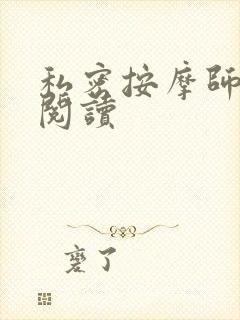 私密按摩師
閱讀
襞了